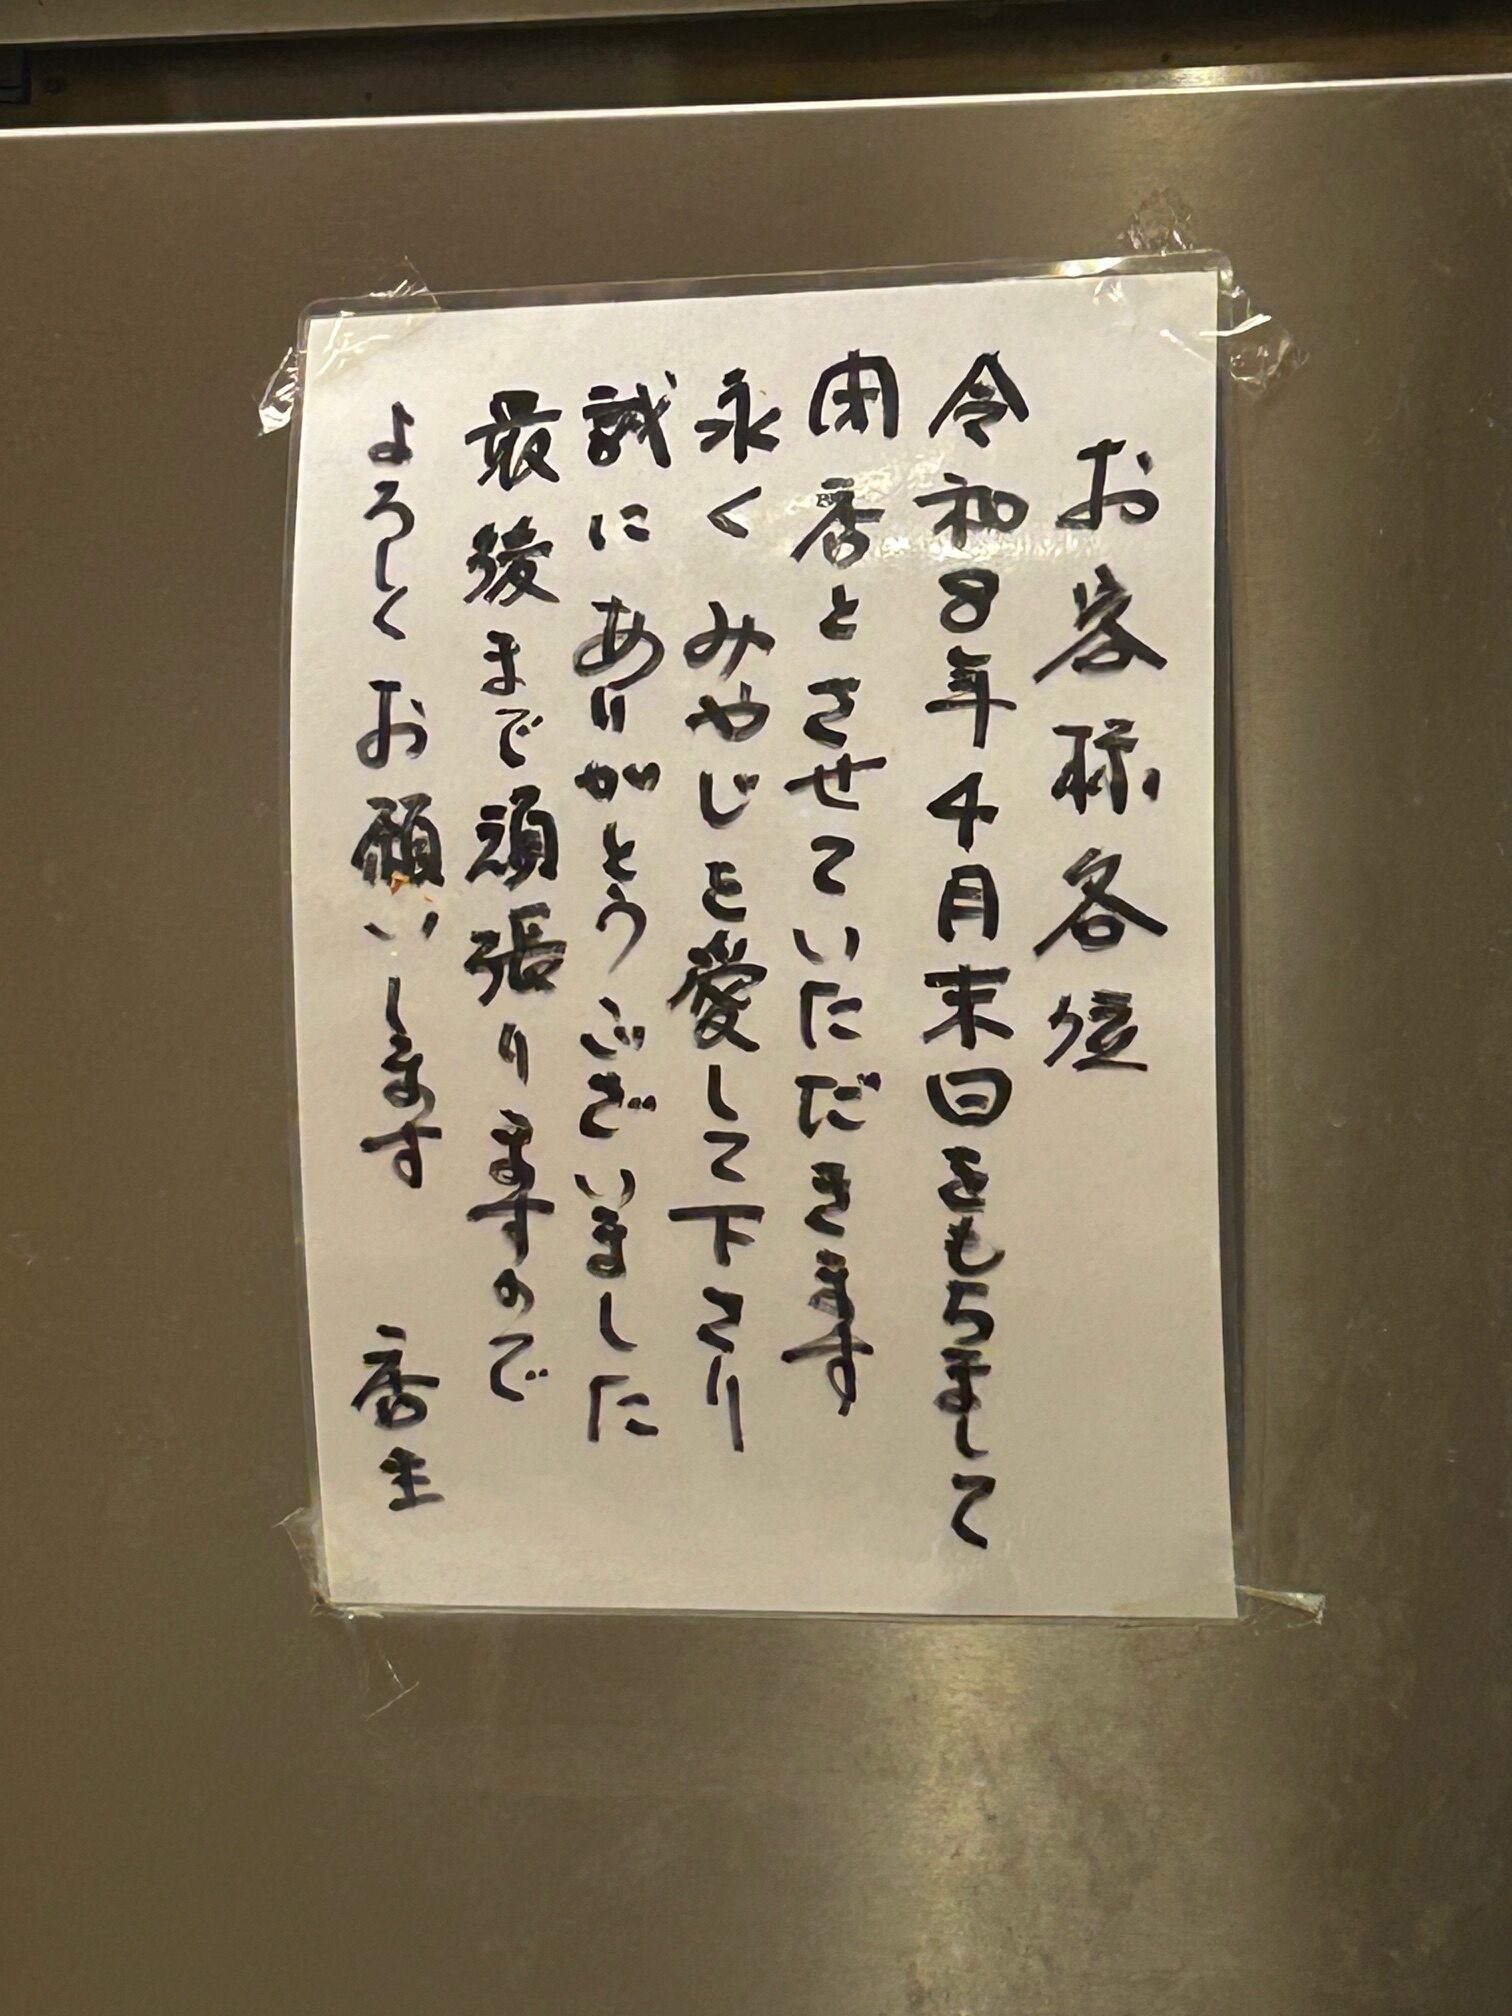 お客様各位
令和8年4月末日をもちまして
閉店とさせていただきます
永くみやじを愛して下さり
誠にありがとうございました
最後まで頑張りますので
よろしくお願いします 店主